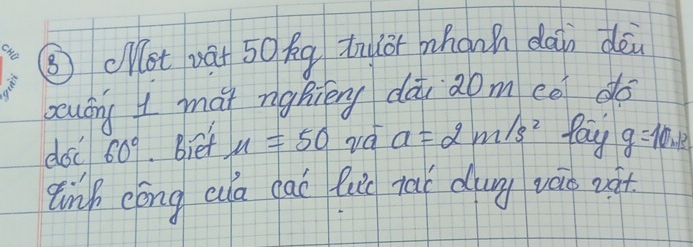 CHO
người
③ Một vật 50 kg trượt nhanh dần đều
xuống 1 mặt nghiêng dài 20 m có độ
dốc 60°. Biết μ = 50 và a = 2 m/s² lấy g = 10
tính công của các lực tác dụng vào vật.